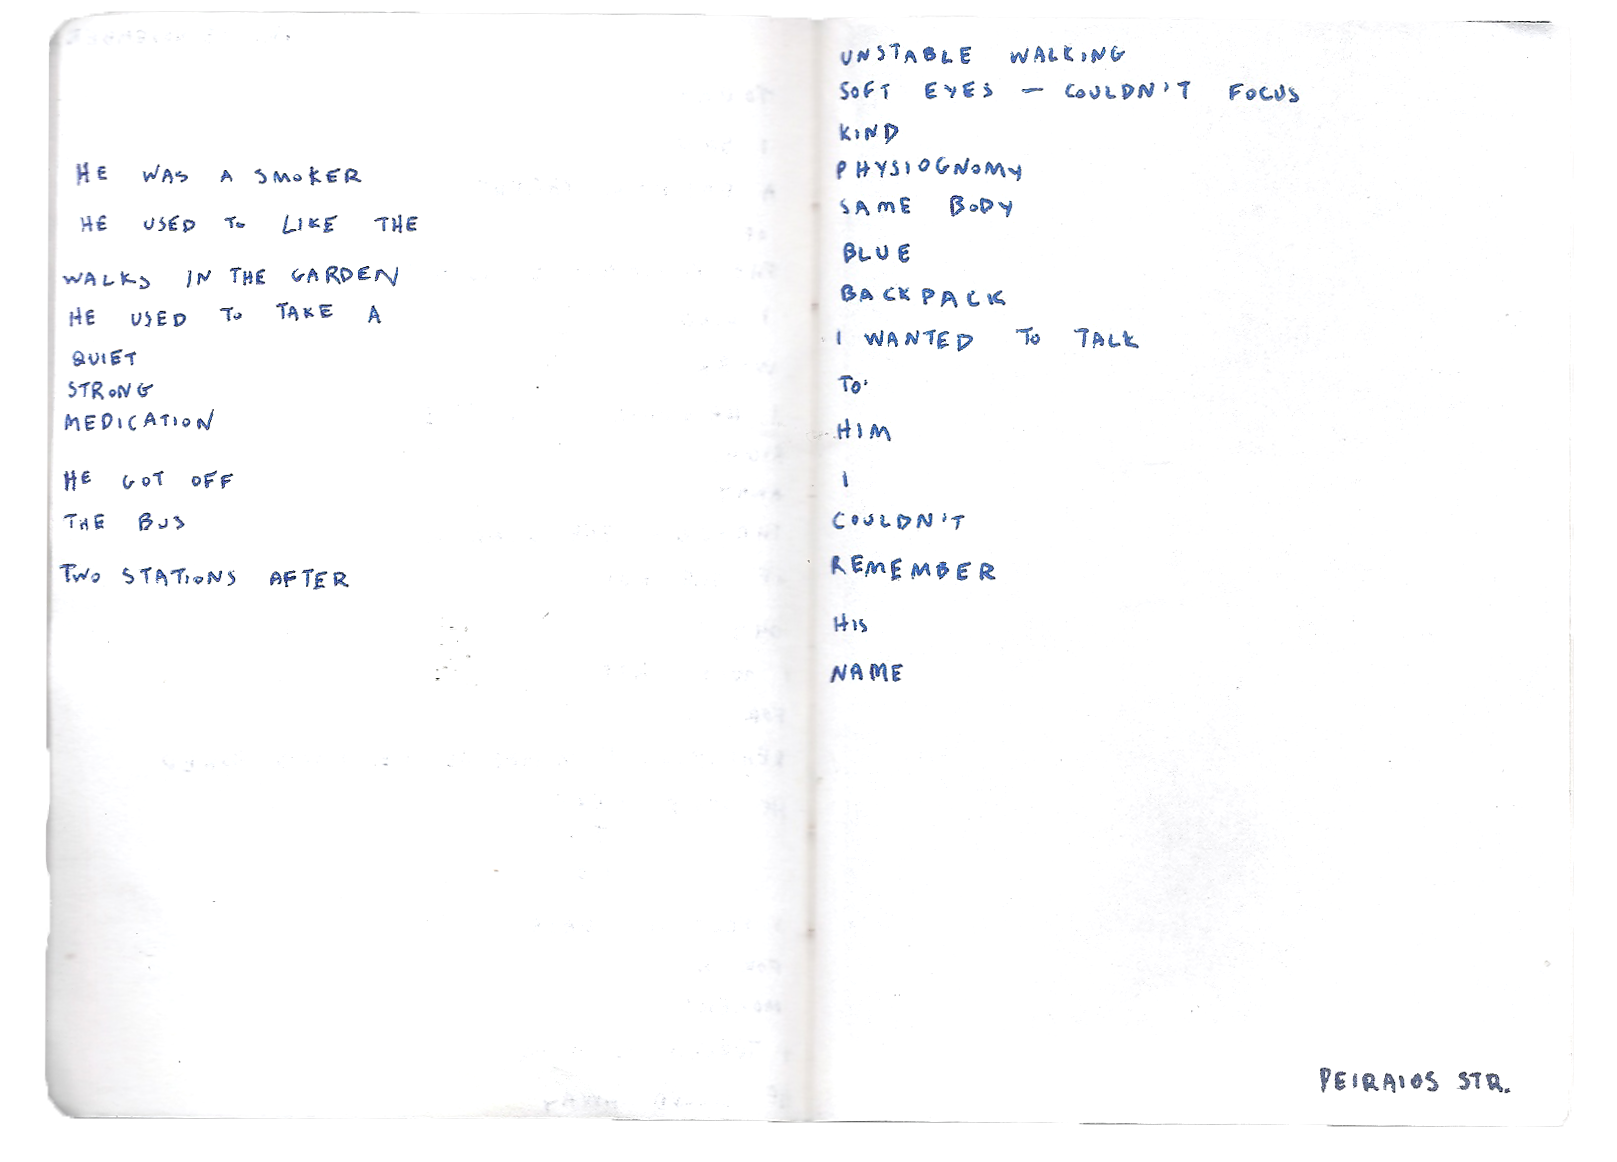 HE WAS A SMOKER
HE USED TO LIKE THE
WALKS IN THE GARDEN
HE USED TO TAKE A
QUIET
STRONG
MEDICATION
HE GOT OFF
THE BUS
TWO STATIONS AFTER
UNSTABLE WALKING
SOFT EYES — COULDN'T FOCUS
KIND
PHYSIOGNOMY
SAME BODY
BLUE
BACKPACK
I WANTED TO TALK
TO
HIM
I
COULDN'T
REMEMBER
HIS
NAME
PEIRAIOS STR.